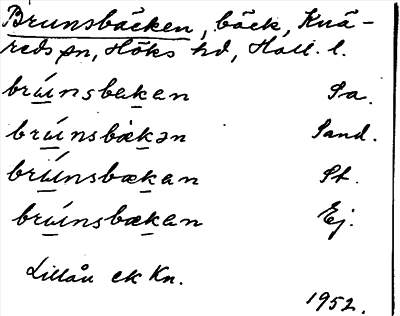 Brunsbäcken, bäck, Knä-
reds sn, Höks hd, Hall. l.
brúnsbækan Sa.
brúnsbækən Sand.
brúnsbækan St.
brúnsbækan Ej.
Lillån ek Kn.
1952.